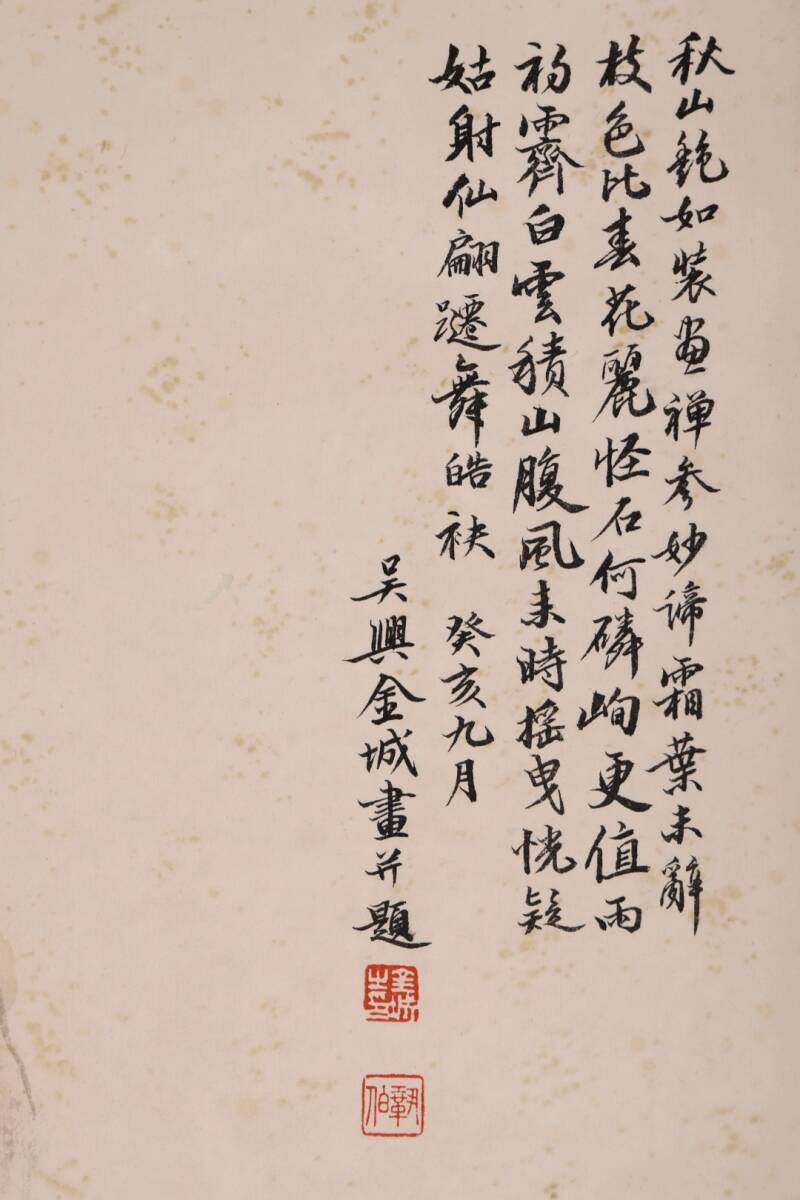 秋山艶如裝畫禪參妙諦霜葉未辭
枝色比春花麗怪石何磷峋更值雨
初霽白雲積山腹風來時搖曳恍疑
姑射仙翩躚舞皓袂 癸亥九月
吳興金城畫并題
金城之印
鞏伯